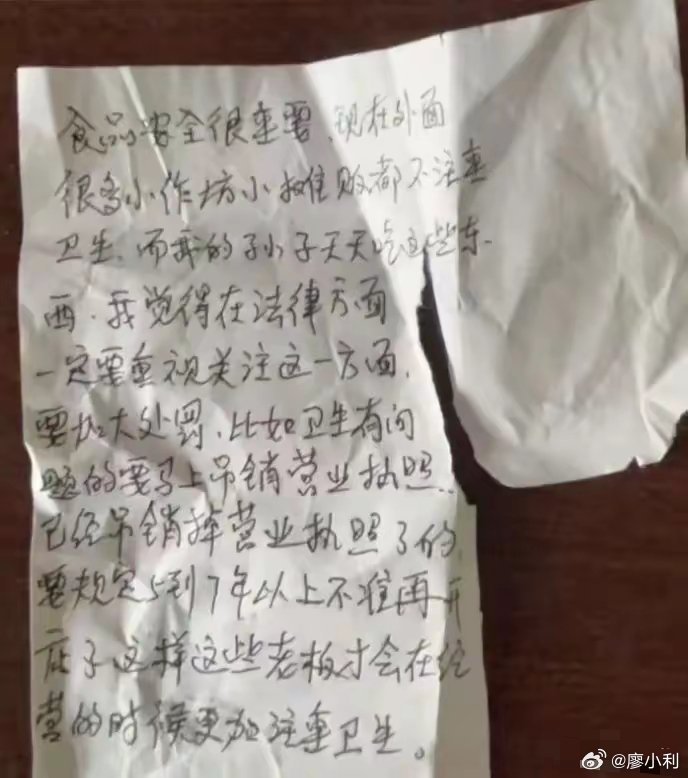 食品安全很重要、现在外面
很多小作坊小摊贩都不注重
卫生、而我的孙子天天吃这些东
西、我觉得在法律方面
一定要重视关注这一方面、
要加大处罚、比如卫生有问
题的要马上吊销营业执照、
已经吊销掉营业执照了的、
要规定5到7年以上不准再开
店了这样这些老板才会在经
营的时候更加注重卫生。
@廖小利